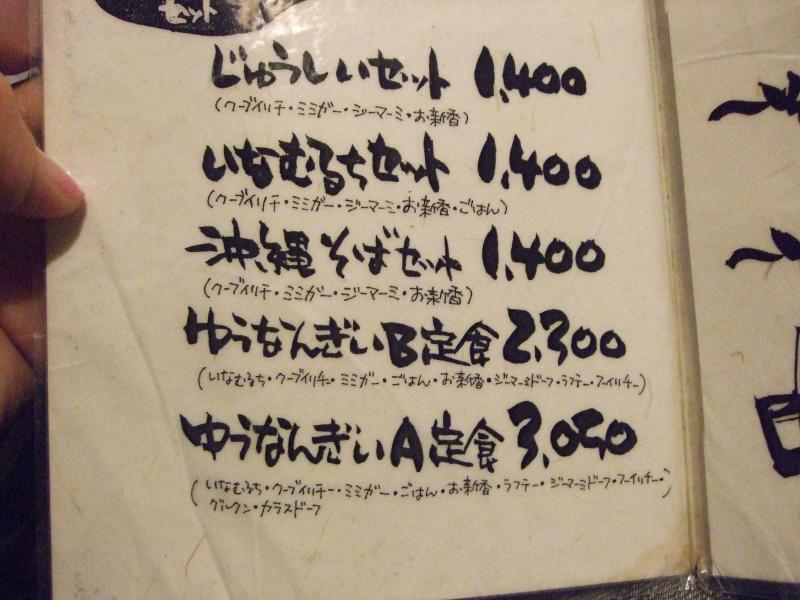 セット
じゅうしいセット 1,400
(クーブイリチ・ミミガー・ジーマーミ・お新香)
いなむるちセット 1,400
(クーブイリチ・ミミガー・ジーマーミ・お新香・ごはん)
沖縄そばセット 1,400
(クーブイリチ・ミミガー・ジーマーミ・お新香)
ゆうなんぎいB定食 2,300
(いなむるち・クーブイリチー・ミミガー・ごはん・お新香・ジーマーミドーフ・ラフテー・フーイリチー)
ゆうなんぎいA定食 3,050
(いなむるち・クーブイリチー・ミミガー・ごはん・お新香・ラフテー・ジーマーミドーフ・フーイリチー・
グルクン・カラスドーフ)